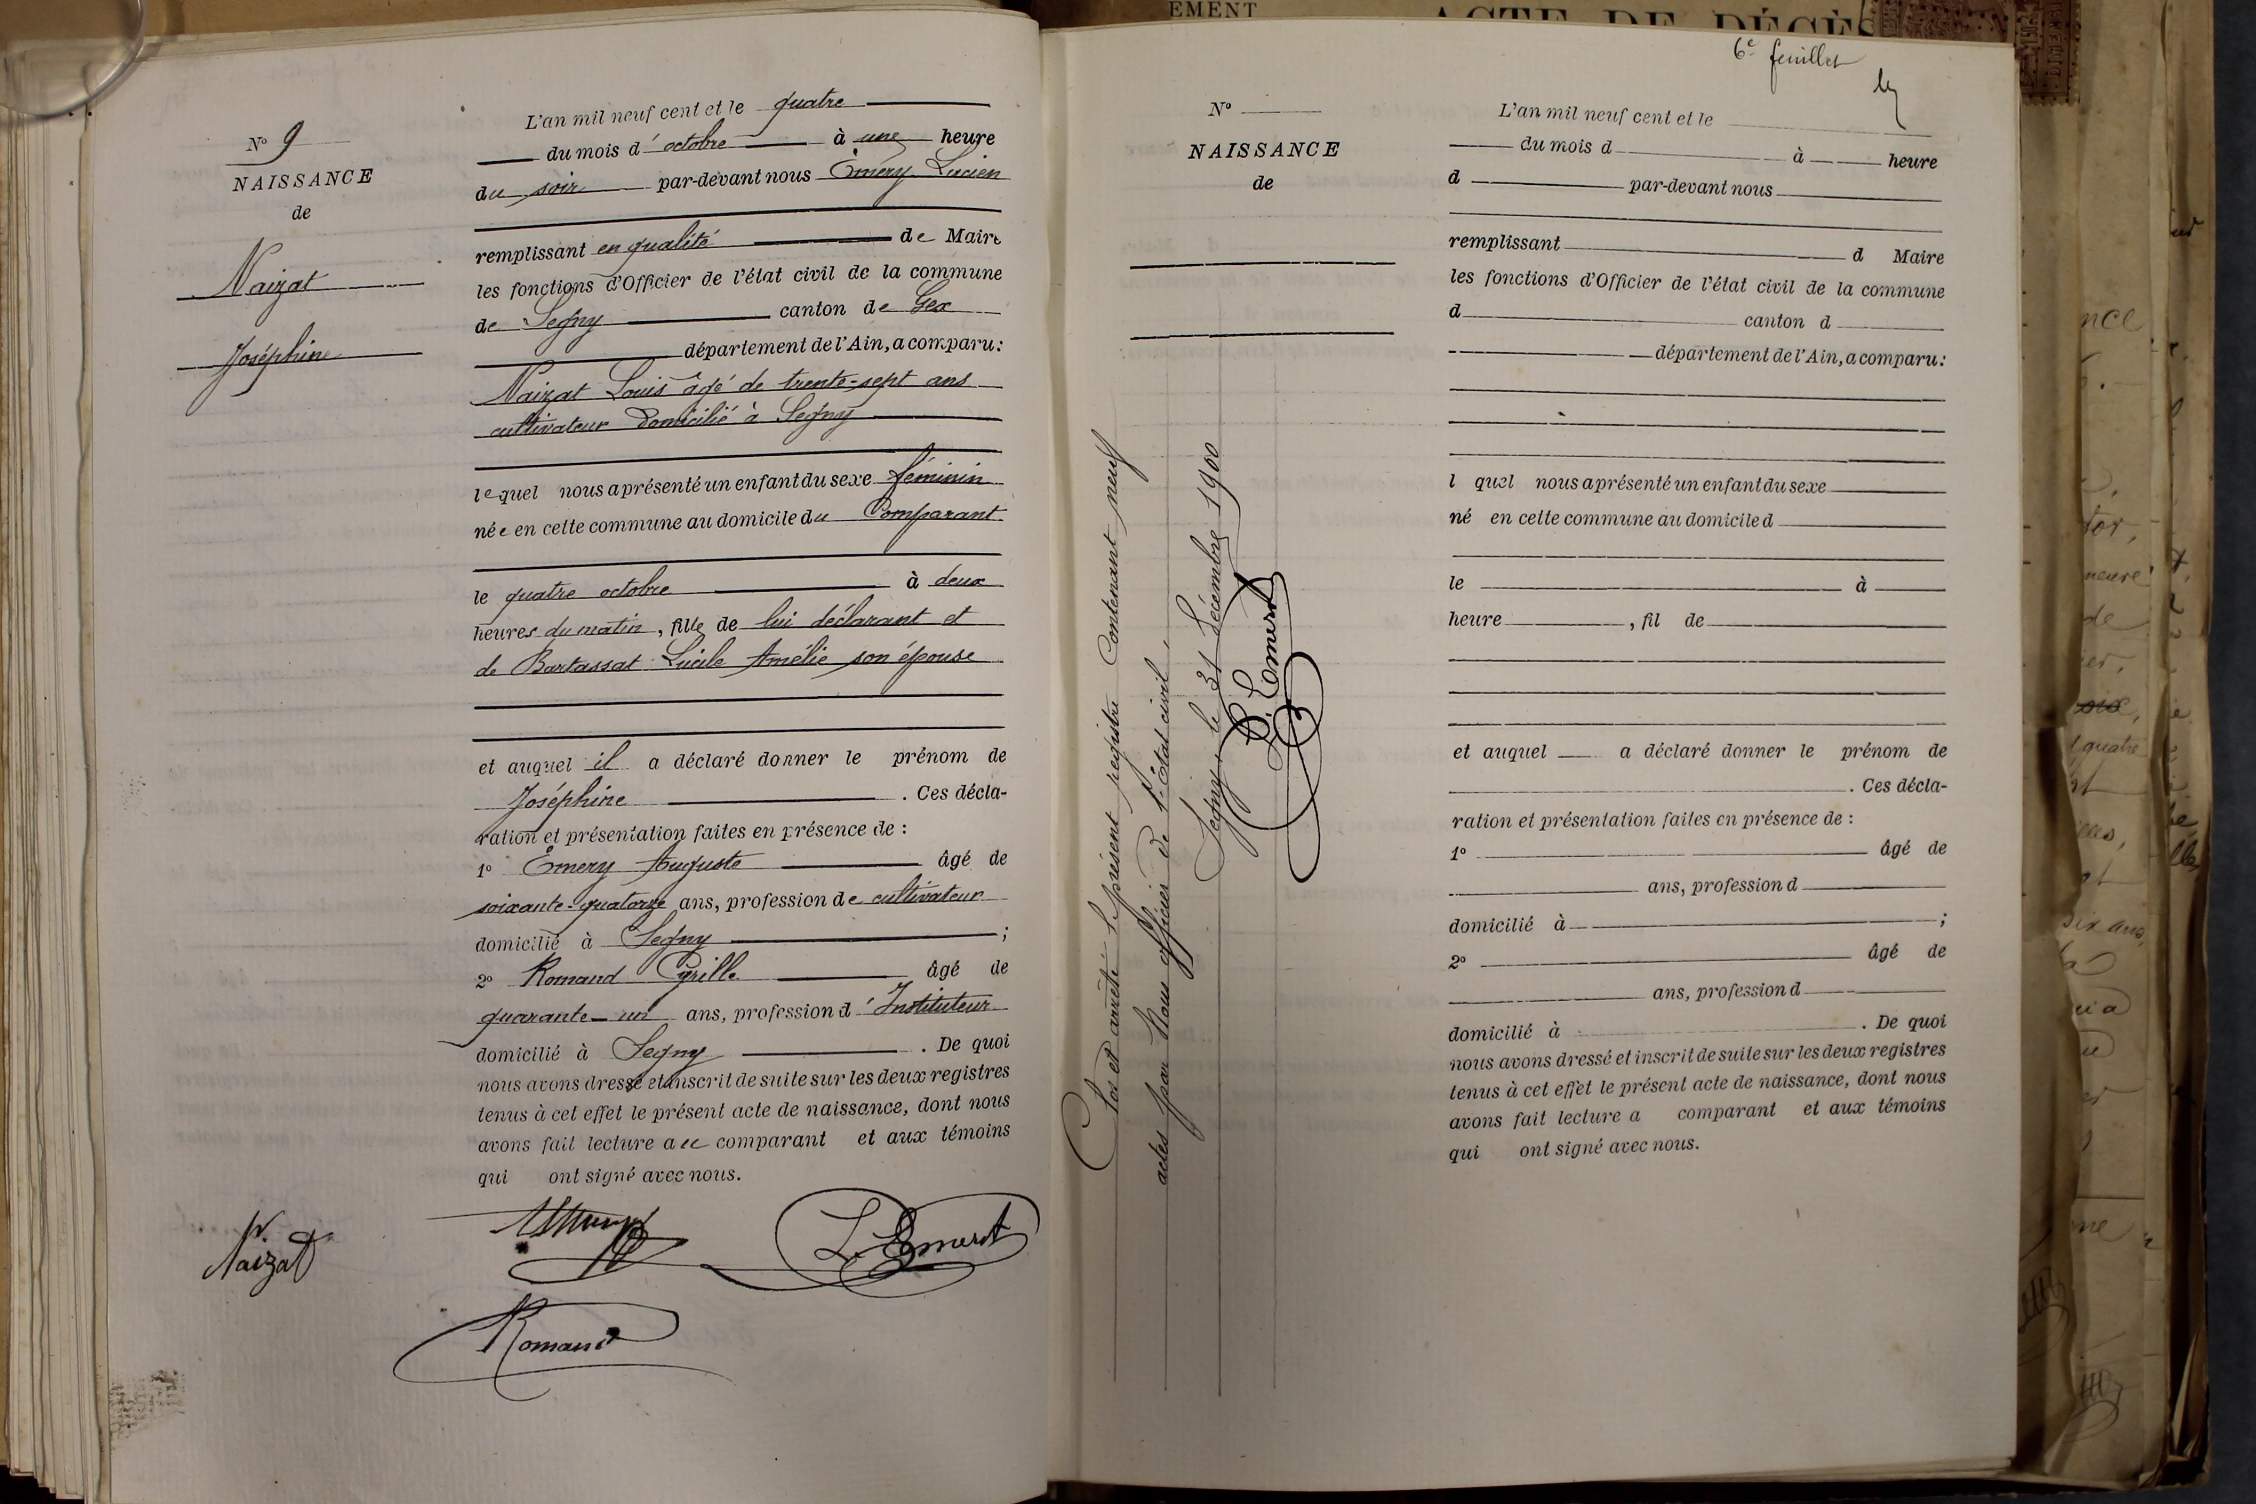 N° 9
NAISSANCE
de
Naizat
Joséphine
L'an mil neuf cent et le quatre
du mois d'octobre à une heure
du soir par-devant nous Émery Lucien
remplissant en qualité de Maire
les fonctions d'Officier de l'état civil de la commune
de Segny canton de Gex
département de l'Ain, a comparu:
Naizat Louis âgé de trente-sept ans
cultivateur domicilié à Segny
lequel nous a présenté un enfant du sexe féminin
née en cette commune au domicile du Comparant
le quatre octobre à deux
heures du matin, fille de lui déclarant et
de Bartassat Lucile Amélie son épouse
et auquel il a déclaré donner le prénom de
Joséphine. Ces décla-
ration et présentation faites en présence de :
1° Émery Auguste âgé de
soixante-quatorze ans, profession de cultivateur
domicilié à Segny ;
2° Romand Cyrille âgé de
quarante-un ans, profession d'Instituteur
domicilié à Segny. De quoi
nous avons dressé et inscrit de suite sur les deux registres
tenus à cet effet le présent acte de naissance, dont nous
avons fait lecture au comparant et aux témoins
qui ont signé avec nous.
Naizat
L. Emery
Romand
EMENT
ACTE DE DÉCÈS
6e feuillet
N°
NAISSANCE
de
Clos et arrêté le présent registre Contenant neuf
actes par Nous officier de l'état civil,
Segny, le 31 Décembre 1900
L. Emery
L'an mil neuf cent et le
du mois d à heure
d par-devant nous
remplissant d Maire
les fonctions d'Officier de l'état civil de la commune
d canton d
département de l'Ain, a comparu:
l quel nous a présenté un enfant du sexe
né en cette commune au domicile d
le à
heure , fil de
et auquel a déclaré donner le prénom de
. Ces décla-
ration et présentation faites en présence de :
1° âgé de
ans, profession d
domicilié à ;
2° âgé de
ans, profession d
domicilié à . De quoi
nous avons dressé et inscrit de suite sur les deux registres
tenus à cet effet le présent acte de naissance, dont nous
avons fait lecture a comparant et aux témoins
qui ont signé avec nous.